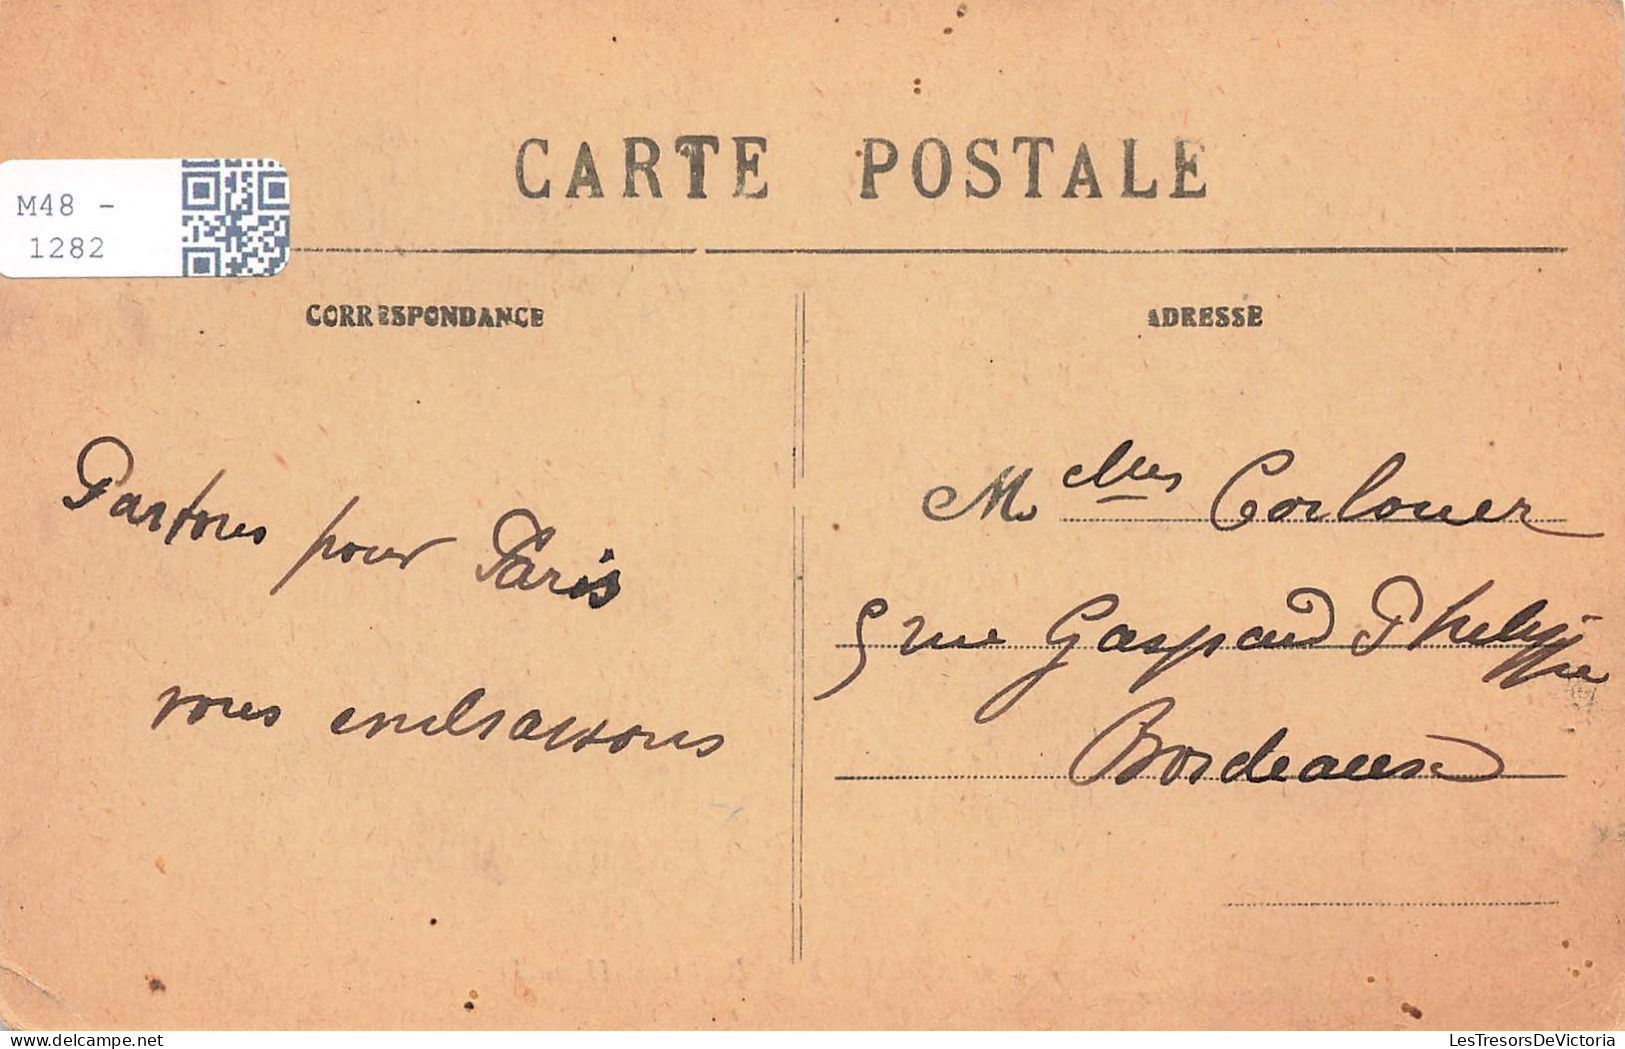 CARTE POSTALE
M48 -
1282
CORRESPONDANCE
ADRESSE
Partons pour Paris
vous embrassons
Melles Corlouer
5 rue Gaspard Philippe
Bordeaux
LesTresorsDeVictoria